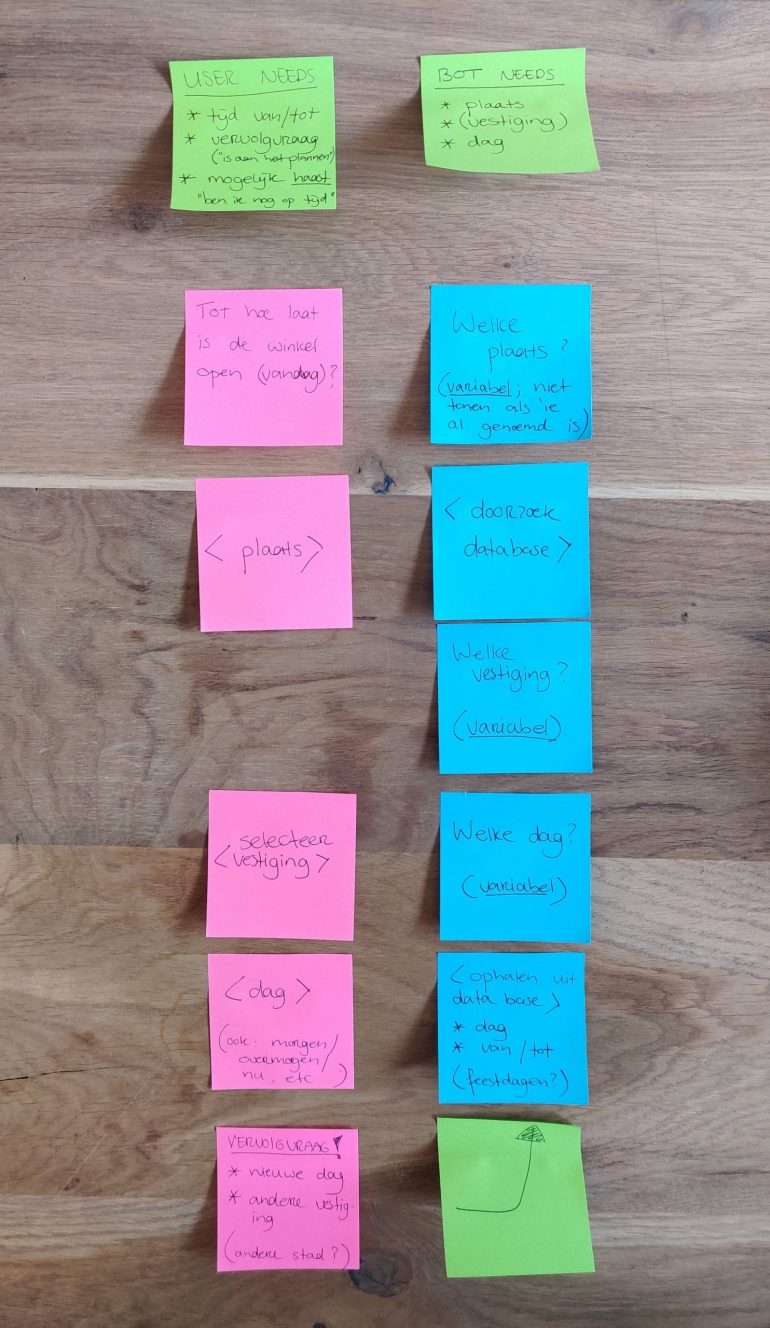 USER NEEDS
* tijd van/tot
* vervolgvraag
("is aan het plannen")
* mogelijk haast
"ben ik nog op tijd"
BOT NEEDS
* plaats
* (vestiging)
* dag
Tot hoe laat
is de winkel
open (vandaag)?
Welke
plaats?
(variabel; niet
tonen als 'ie
al genoemd is)
< plaats >
< doorzoek
database >
Welke
vestiging?
(variabel)
selecteer
< vestiging >
Welke dag?
(variabel)
< dag >
(ook: morgen/
overmorgen/
nu, etc )
< ophalen uit
data base >
* dag
* van/tot
(feestdagen?)
VERVOLGVRAAG!
* nieuwe dag
* andere vestig-
ing
(andere stad?)